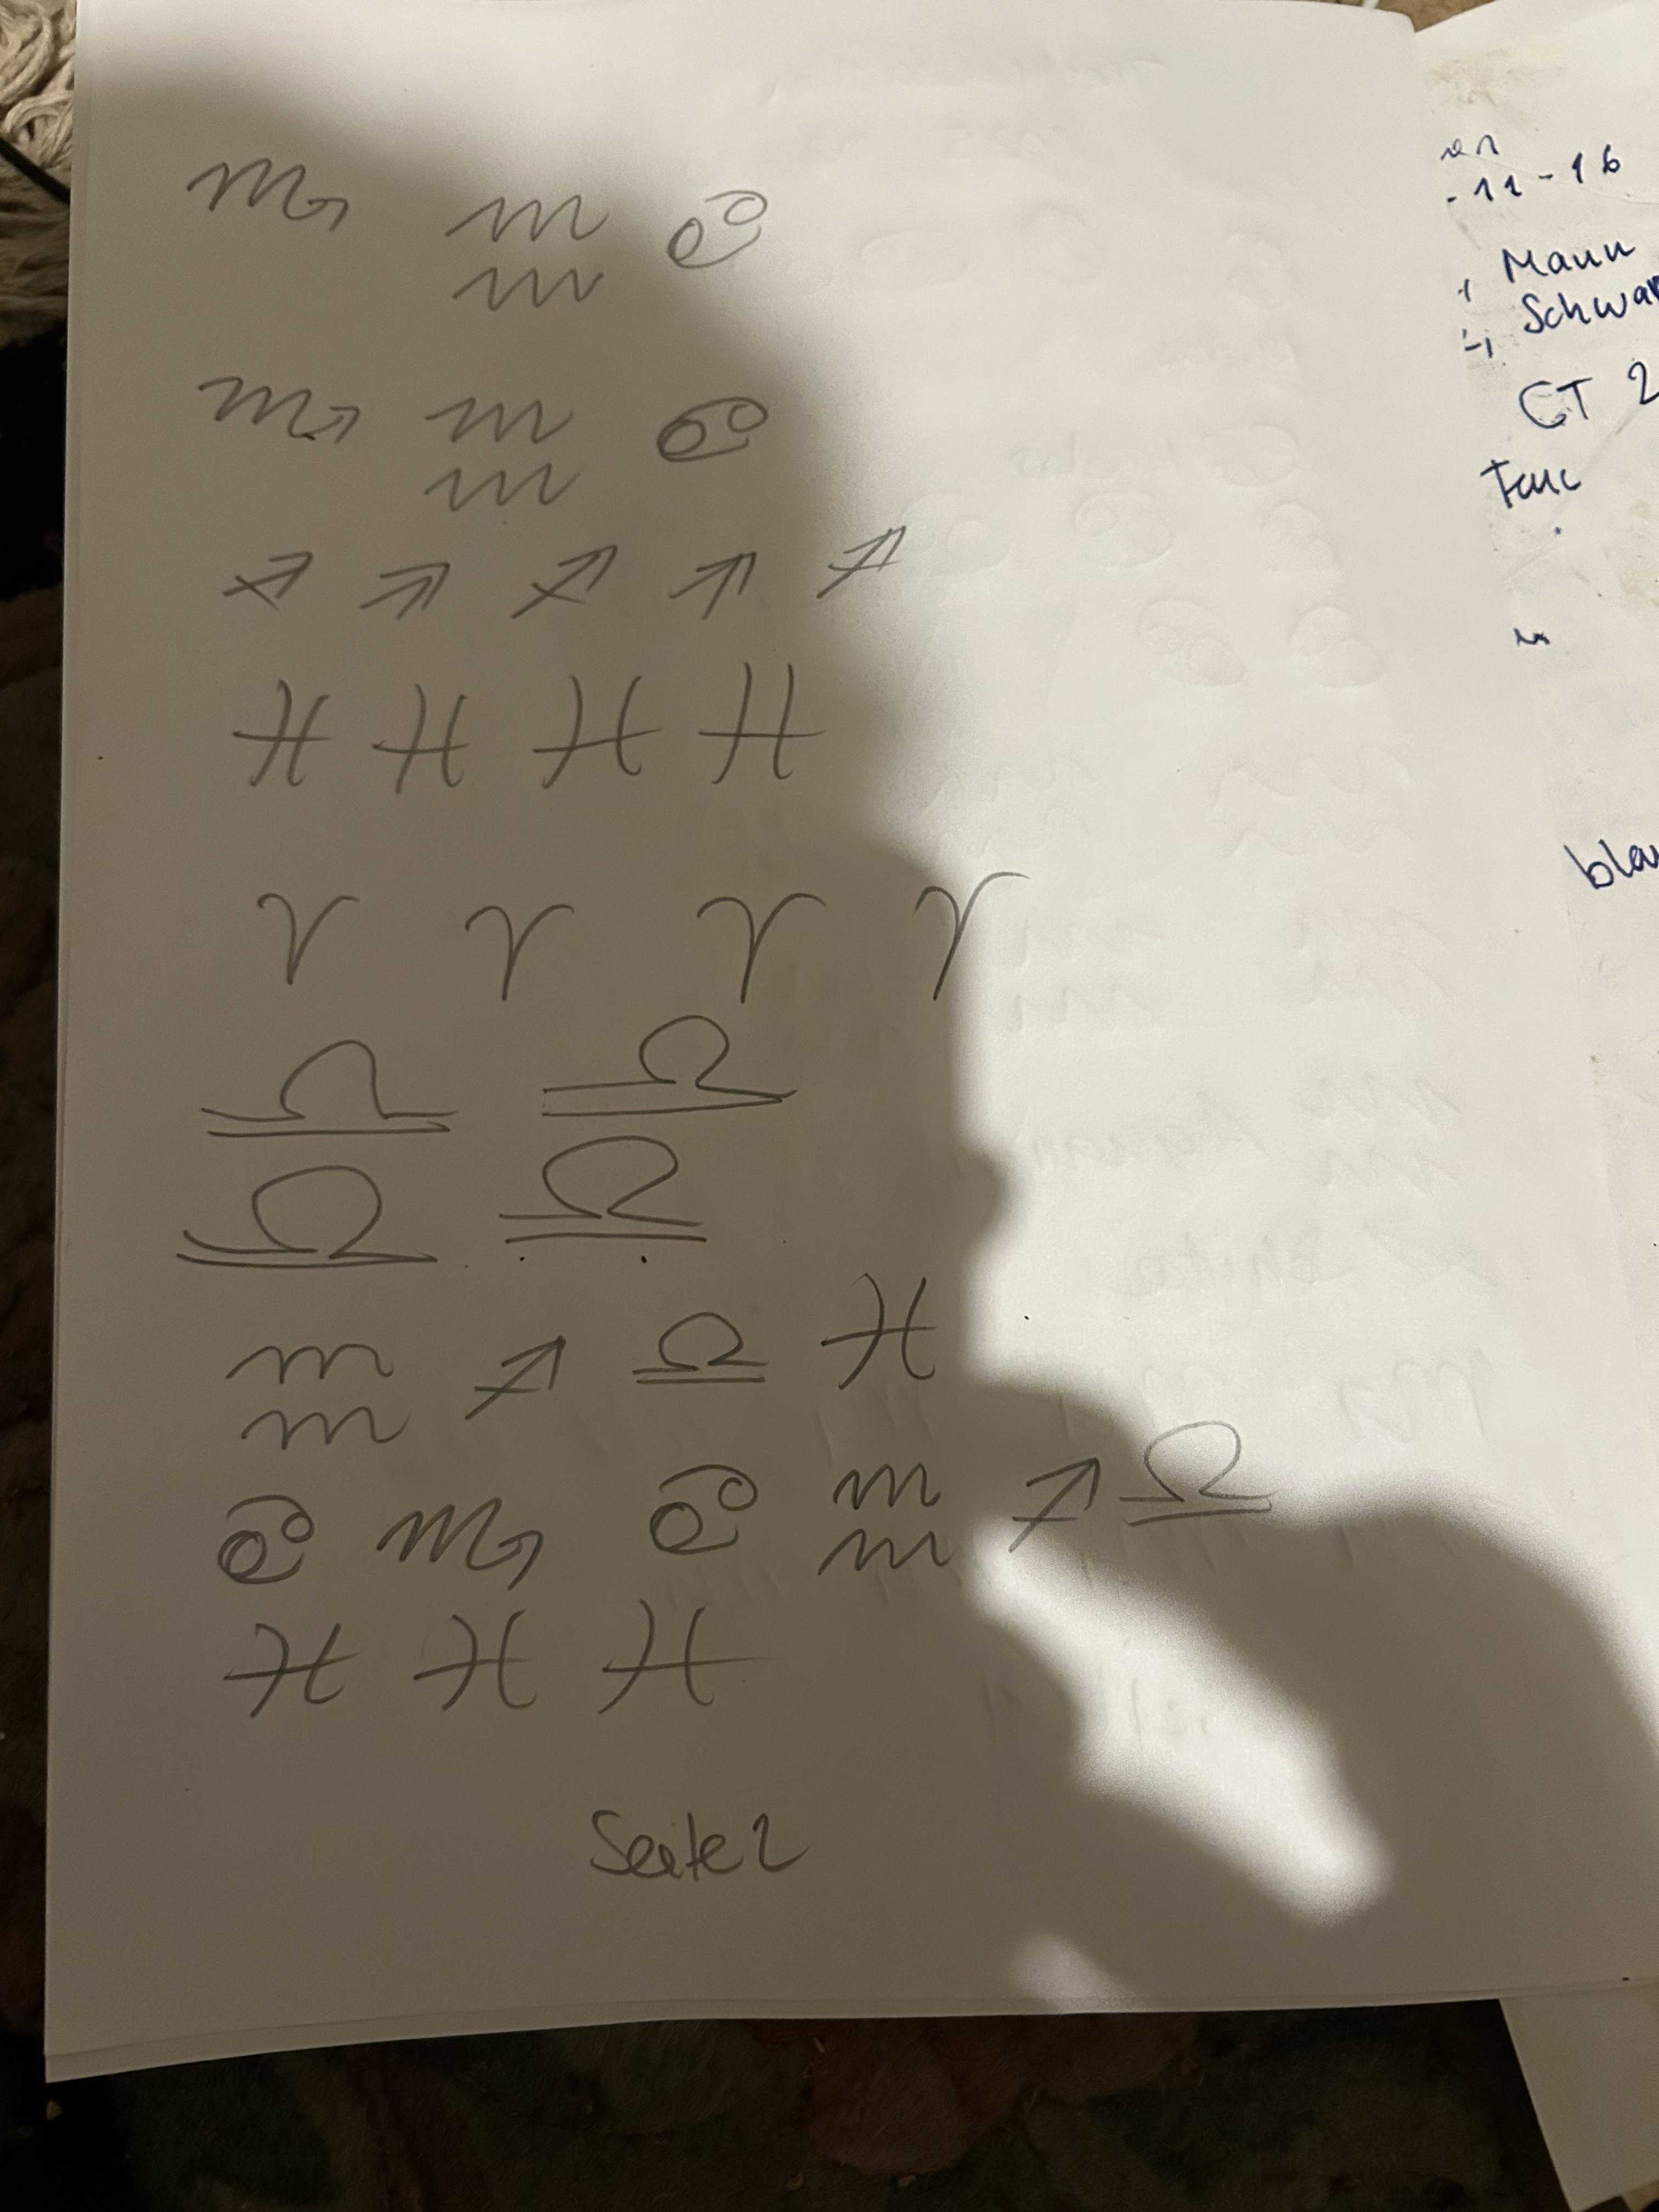 ♍ ♒ ♋
♏ ♒ ♋
♐ ♐ ♐ ♐ ♐
♓ ♓ ♓ ♓
♈ ♈ ♈ ♈
♎ ♎
♎ ♎
♒ ♐ ♎ ♓
♋ ♍ ♋ ♒ ♐ ♎
♓ ♓ ♓
Seite 2
11-16
Mann
Schwar
GT 2
bla